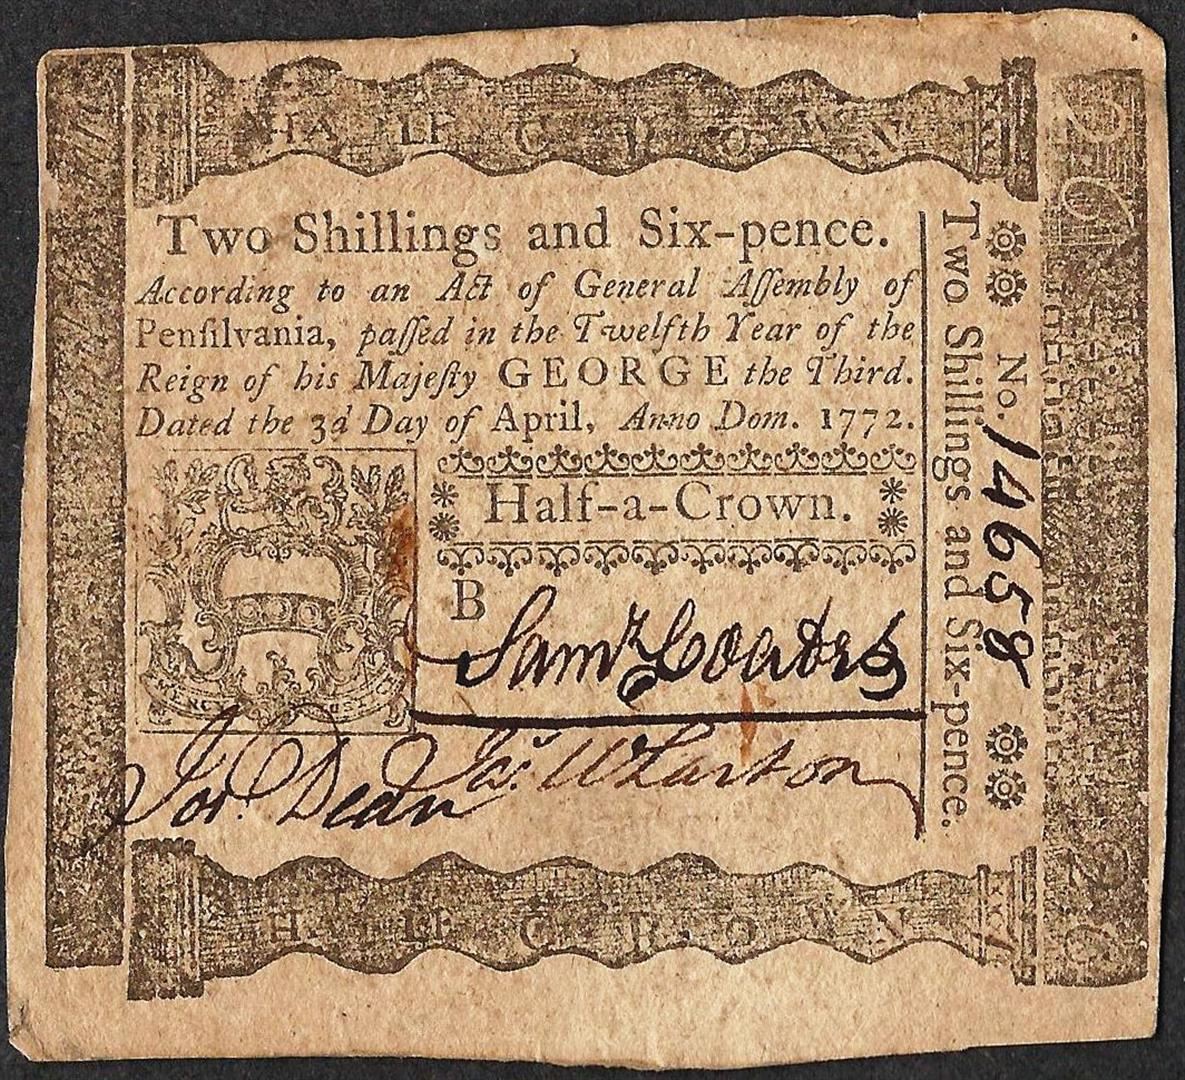 HALF CROWN
Two Shillings and Six-pence.
According to an Act of General Aſſembly of
Penſilvania, paſſed in the Twelfth Year of the
Reign of his Majeſty GEORGE the Third.
Dated the 3d Day of April, Anno Dom. 1772.
Half-a-Crown.
B
Saml Coates
Jos. Dean Jas. Wharton
HALF CROWN
No. 14658
Two Shillings and Six-pence.